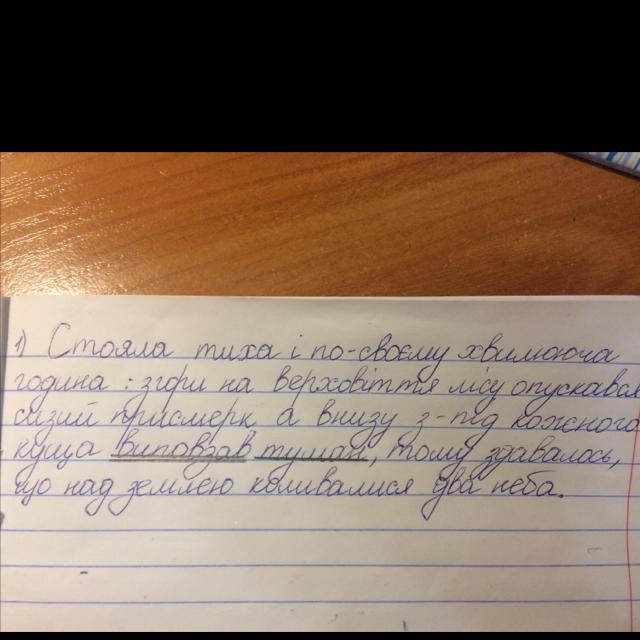 1) Стояла тиха і по-своєму хвилююча
година : згори на верховіття лісу опускався
сизий присмерк, а внизу з-під кожного
куща виповзав туман, тому здавалось,
що над землею коливалися два неба.